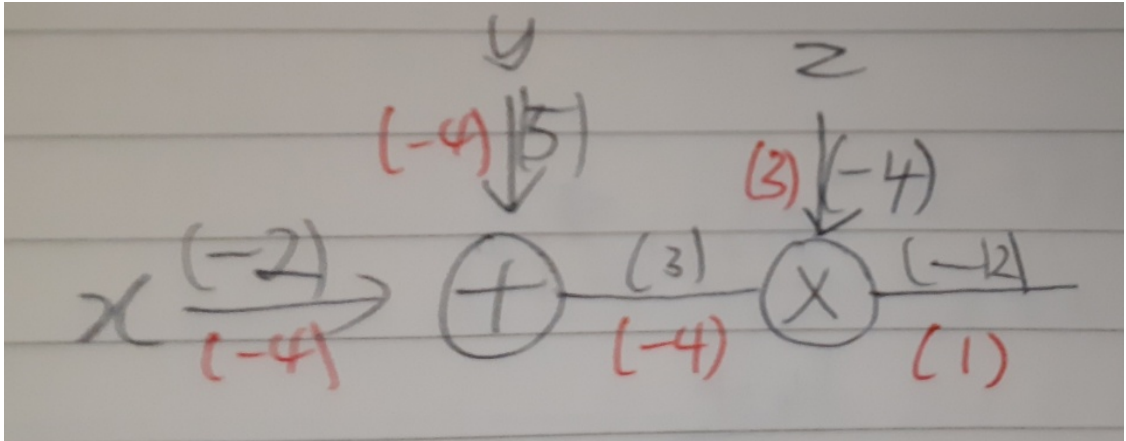 y z
(-4) (5) (3) (-4)
x (-2) + (3) × (-12)
(-4) (-4) (1)